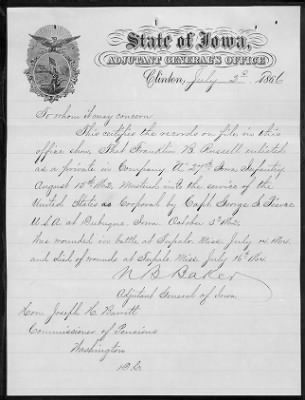 State of Iowa,
ADJUTANT GENERAL'S OFFICE
Clinton, July 2d 1866
To whom it may concern
This certifies the records on file in this
office show. That Franklin B. Russell enlisted
as a private in Company 27th Iowa Infantry
August 15th 1862, Mustered into the service of the
United States as Corporal by Capt George S. Pierce
U.S.A at Dubuque, Iowa October 3d 1862,
Was wounded in battle at Tupelo. Miss July 14. 1864
and died of wounds at Tupelo Miss July 16th 1864
N B Baker
Adjutant General of Iowa
Hon Joseph H Barrett
Commissioner of Pensions
Washington
D.C.